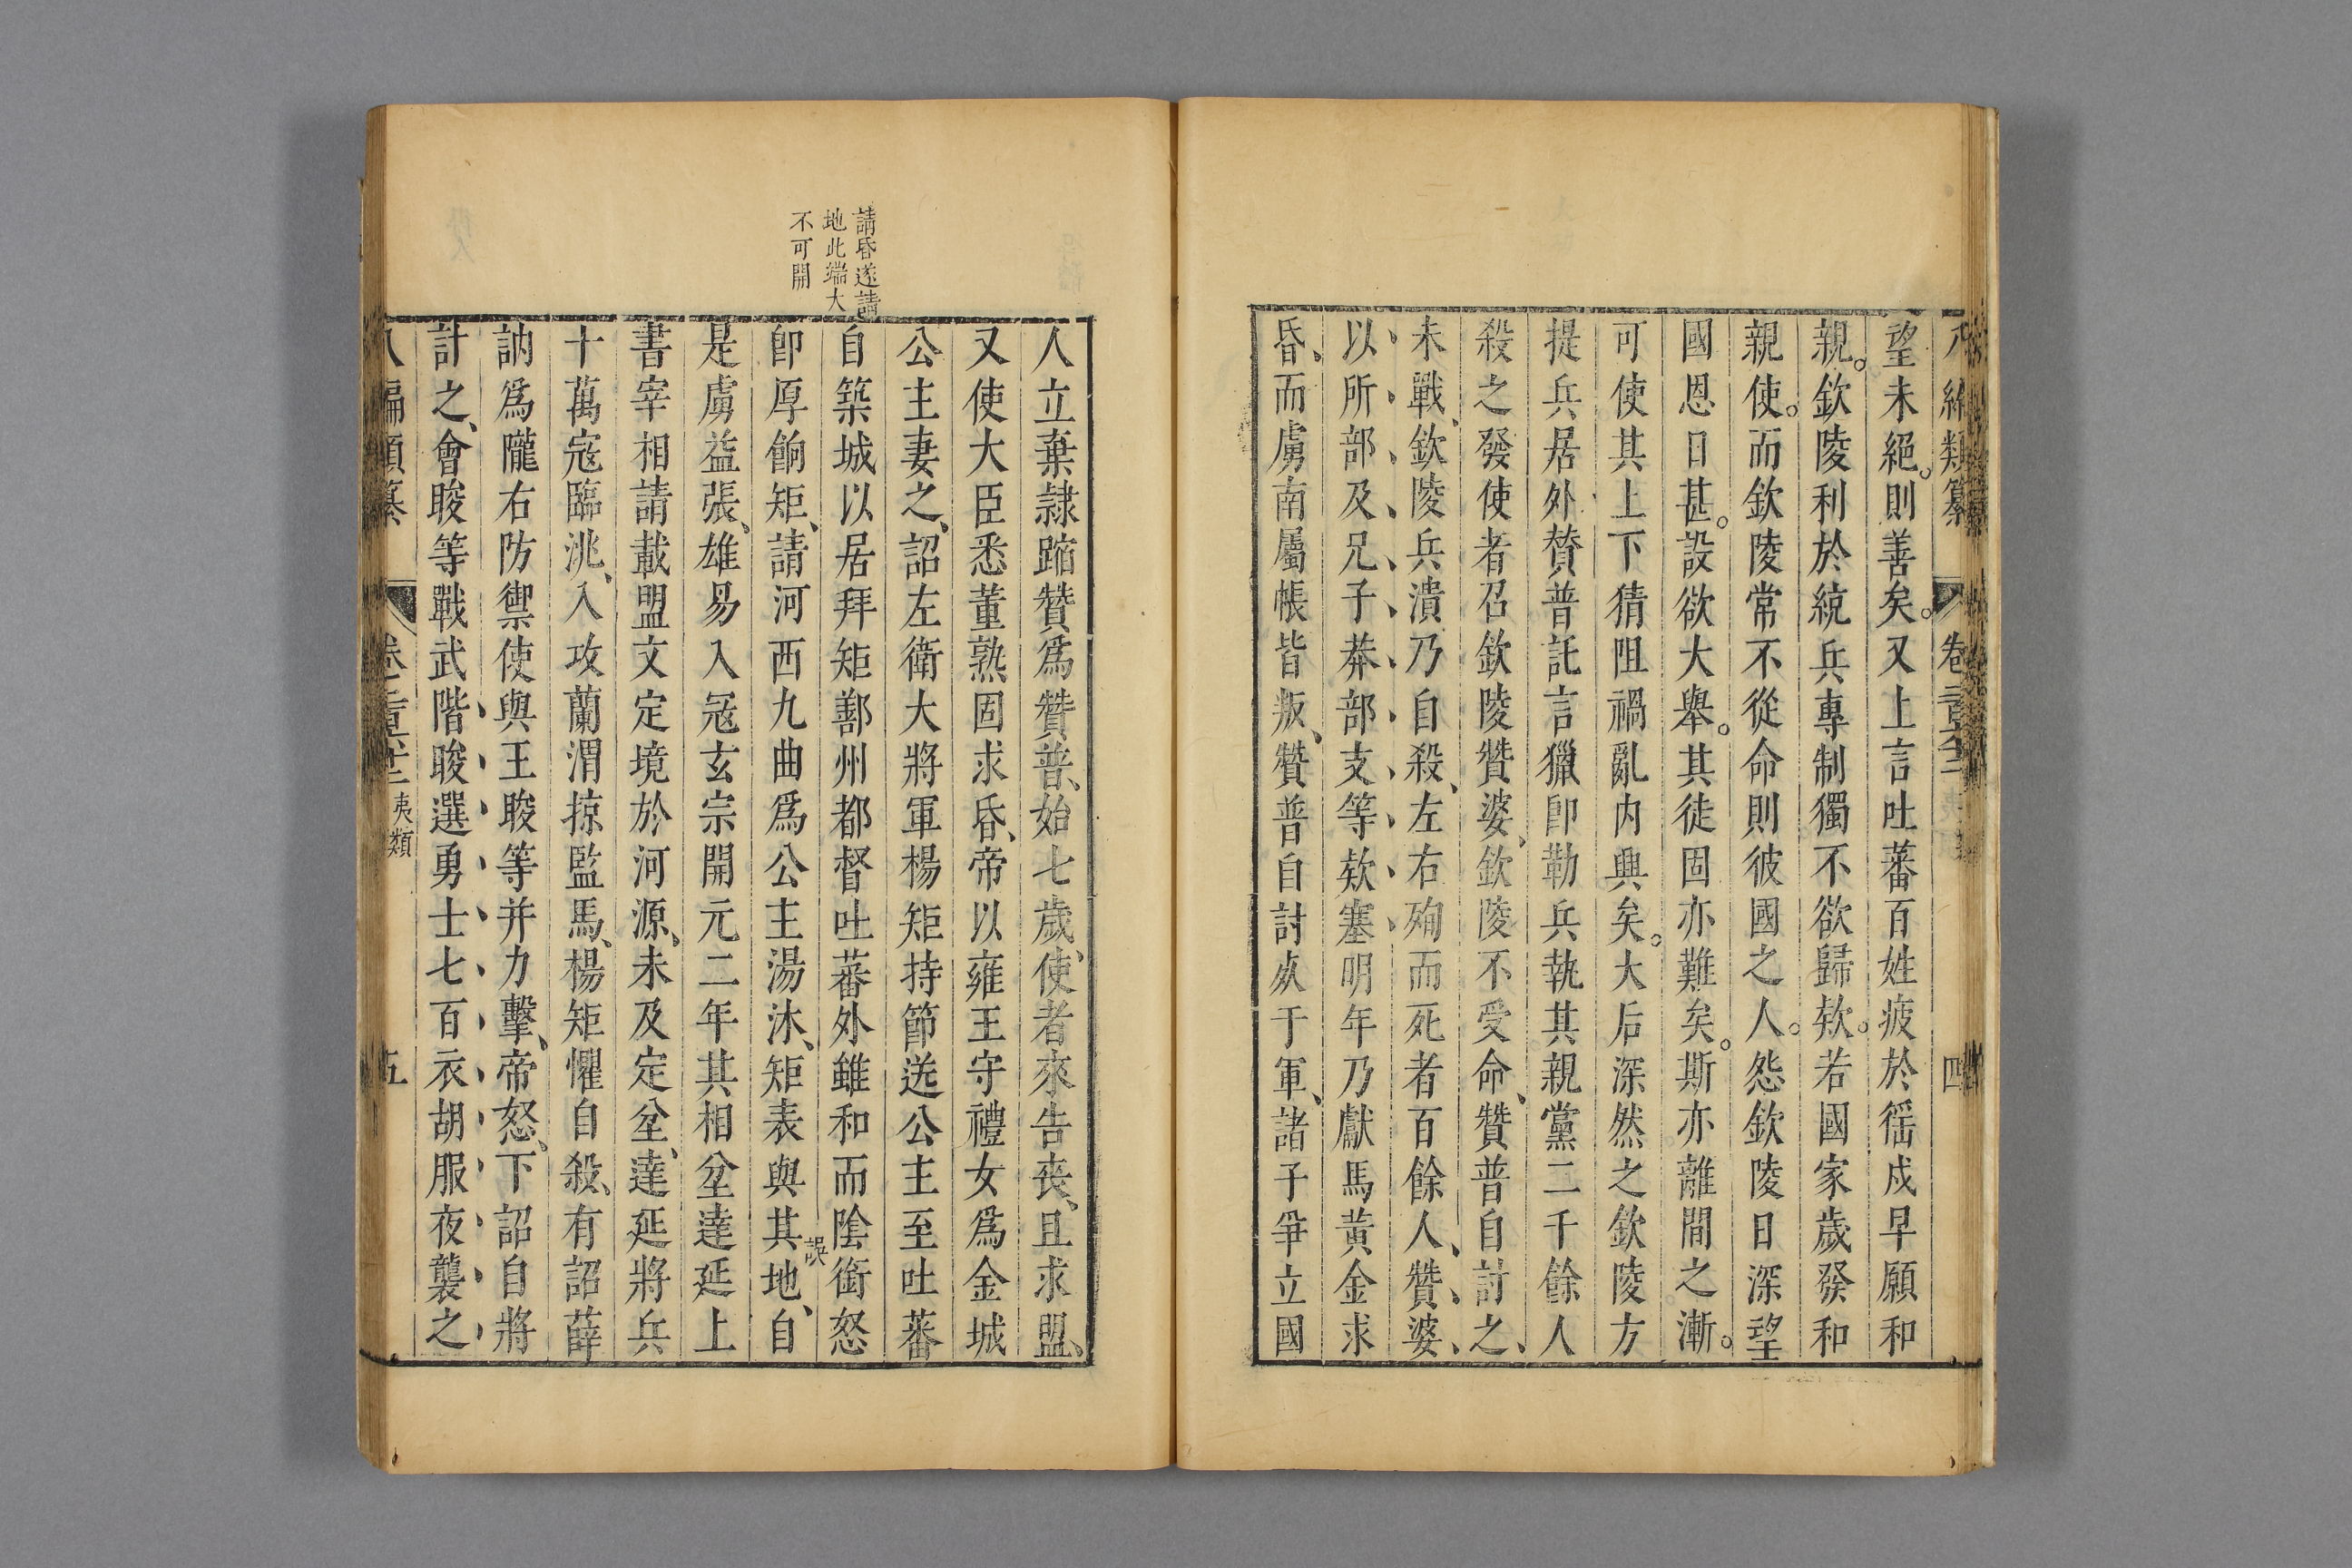 八編類纂 卷 四
望未絕。則善矣。又上言吐蕃百姓疲於徭戍早願和
親。欽陵利於統兵專制獨不欲歸欵。若國家歲發和
親使。而欽陵常不從命則彼國之人。怨欽陵日深望
國恩日甚。設欲大舉。其徒固亦難矣。斯亦離間之漸。
可使其上下猜阻禍亂内興矣。大后深然之欽陵方
提兵居外贊普託言獵卽勒兵執其親黨二千餘人
殺之發使者召欽陵贊婆、欽陵不受命、贊普自討之、
未戰、欽陵兵潰乃自殺、左右殉而死者百餘人、贊婆、
以所部及兄子莽部支等欵塞明年乃獻馬黃金求
昏、而虜南屬帳皆叛、贊普自討𣦸于軍、諸子爭立國
請昏遂請
地此端大
不可開
人立棄隸蹜贊爲贊普、始七歲、使者來告喪、且求盟、
又使大臣悉董熟固求昏、帝以雍王守禮女爲金城
公主妻之、詔左衛大將軍楊矩持節送公主至吐蕃
自築城以居拜矩鄯州都督吐蕃外雖和而陰銜怒
卽厚餉矩、請河西九曲爲公主湯沐、矩表與其地、自
誤
是虜益張、雄易入寇玄宗開元二年其相坌達延上
書宰相請載盟文定境於河源、未及定坌、達延將兵
十萬寇臨洮、入攻蘭渭掠監馬、楊矩懼自殺、有詔薛
訥爲隴右防禦使與王晙等并力擊、帝怒、下詔自將
計之、會晙等戰武階晙選勇士七百衣胡服夜襲之
八編類纂 卷 夷類 五